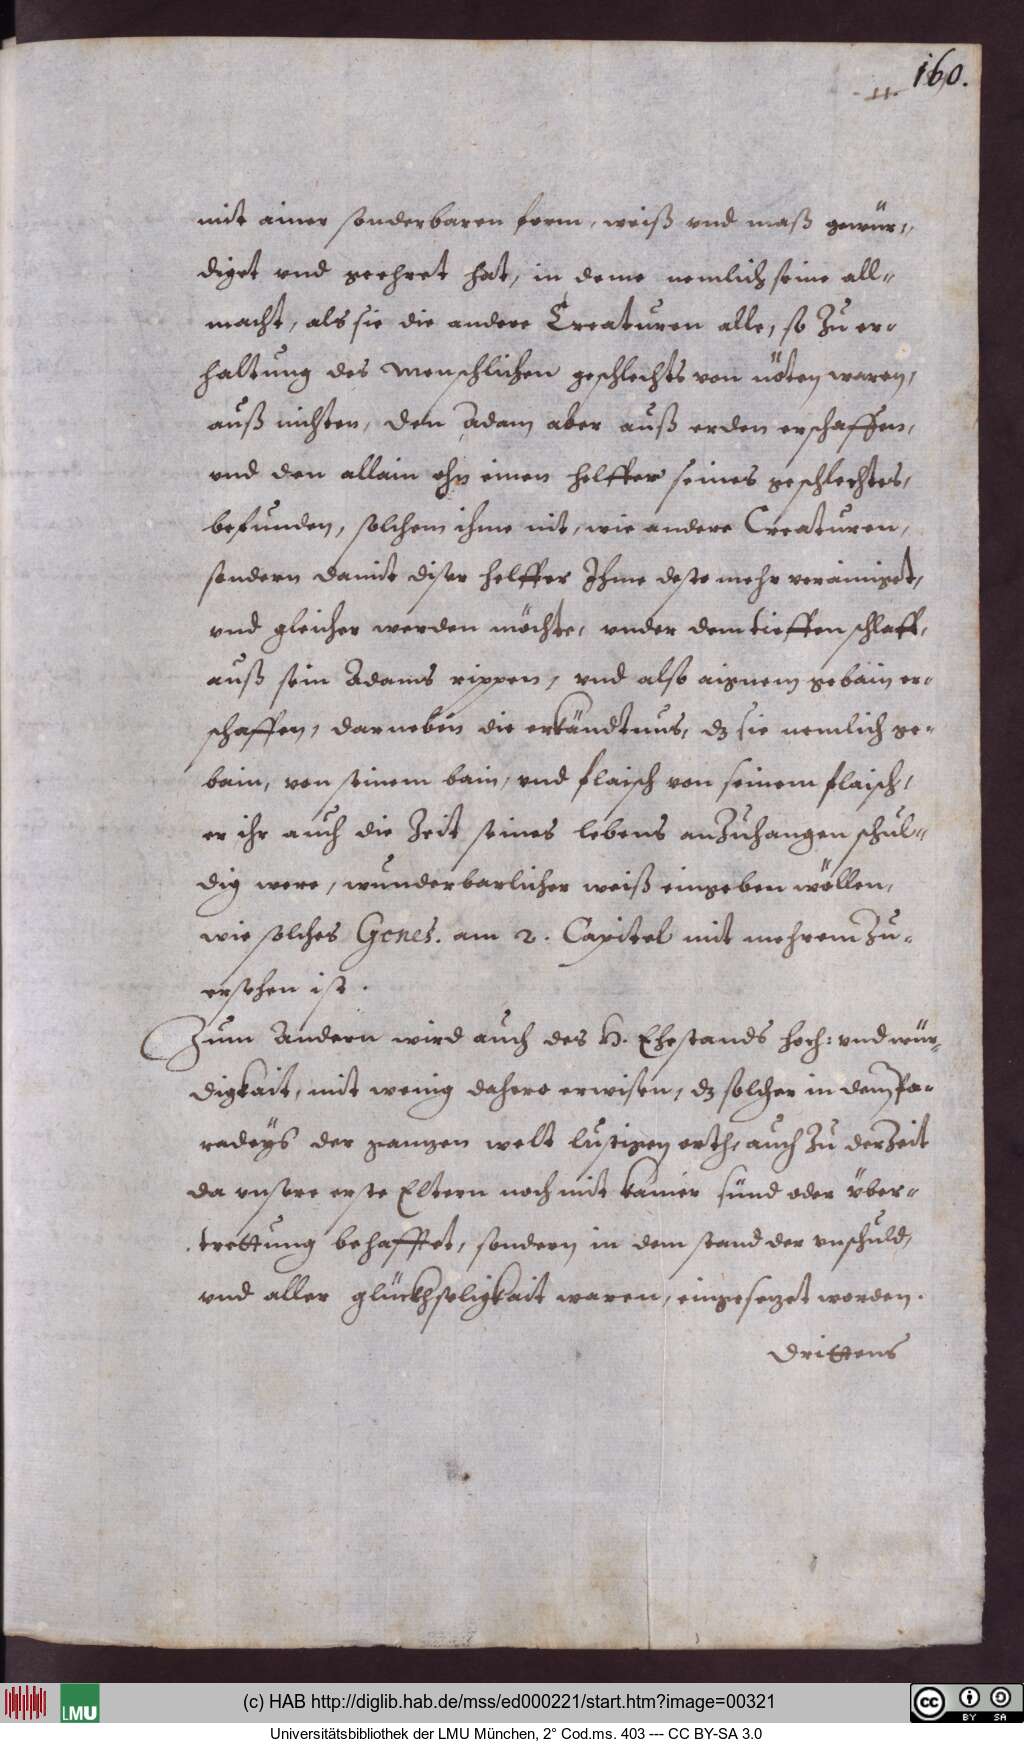 160.
11.
mit ainer sonderbaren form, weiß vnd maß gewür-
diget vnd geehret hat, in deme nemlich seine all-
macht, als sie die andere Creaturen alle, so zu er-
haltung des menschlichen geschlechts von nöten waren,
auß nichten, den Adam aber auß erden erschaffen,
vnd den allain ohn einen helffer seines geschlechtes,
befunden, solchem ihme nit, wie andere Creaturen,
sondern damit diser helffer Ihme desto mehr verainiget,
vnd gleicher werden möchte, vnder dem tieffen schlaff,
auß sein Adams rippen, vnd also aignem gebain er-
schaffen, darneben die erkändtnus, dz sie nemlich ge-
bain, von seinem bain, vnd flaisch von seinem flaisch,
er ihr auch die Zeit seines lebens anzuhangen schul-
dig were, wunderbarlicher weiß eingeben wöllen,
wie solches Genes. am 2. Capitel mit mehrem zu-
ersehen ist.
Zum Andern wird auch des H. Ehestands hoch: vnd wür-
digkait, nit wenig dahero erwisen, dz solcher in dem Pa-
radeÿs der gantzen welt lustigen orth, auch zu der Zeit
da vnsere erste Eltern noch mit kainer sünd oder über-
trettung behafftet, sondern in dem stand der vnschuld,
vnd aller glückhseligkait waren, eingesetzet worden.
Drittens
(c) HAB http://diglib.hab.de/mss/ed000221/start.htm?image=00321
LMU
CC BY SA
Universitätsbibliothek der LMU München, 2° Cod.ms. 403 --- CC BY-SA 3.0